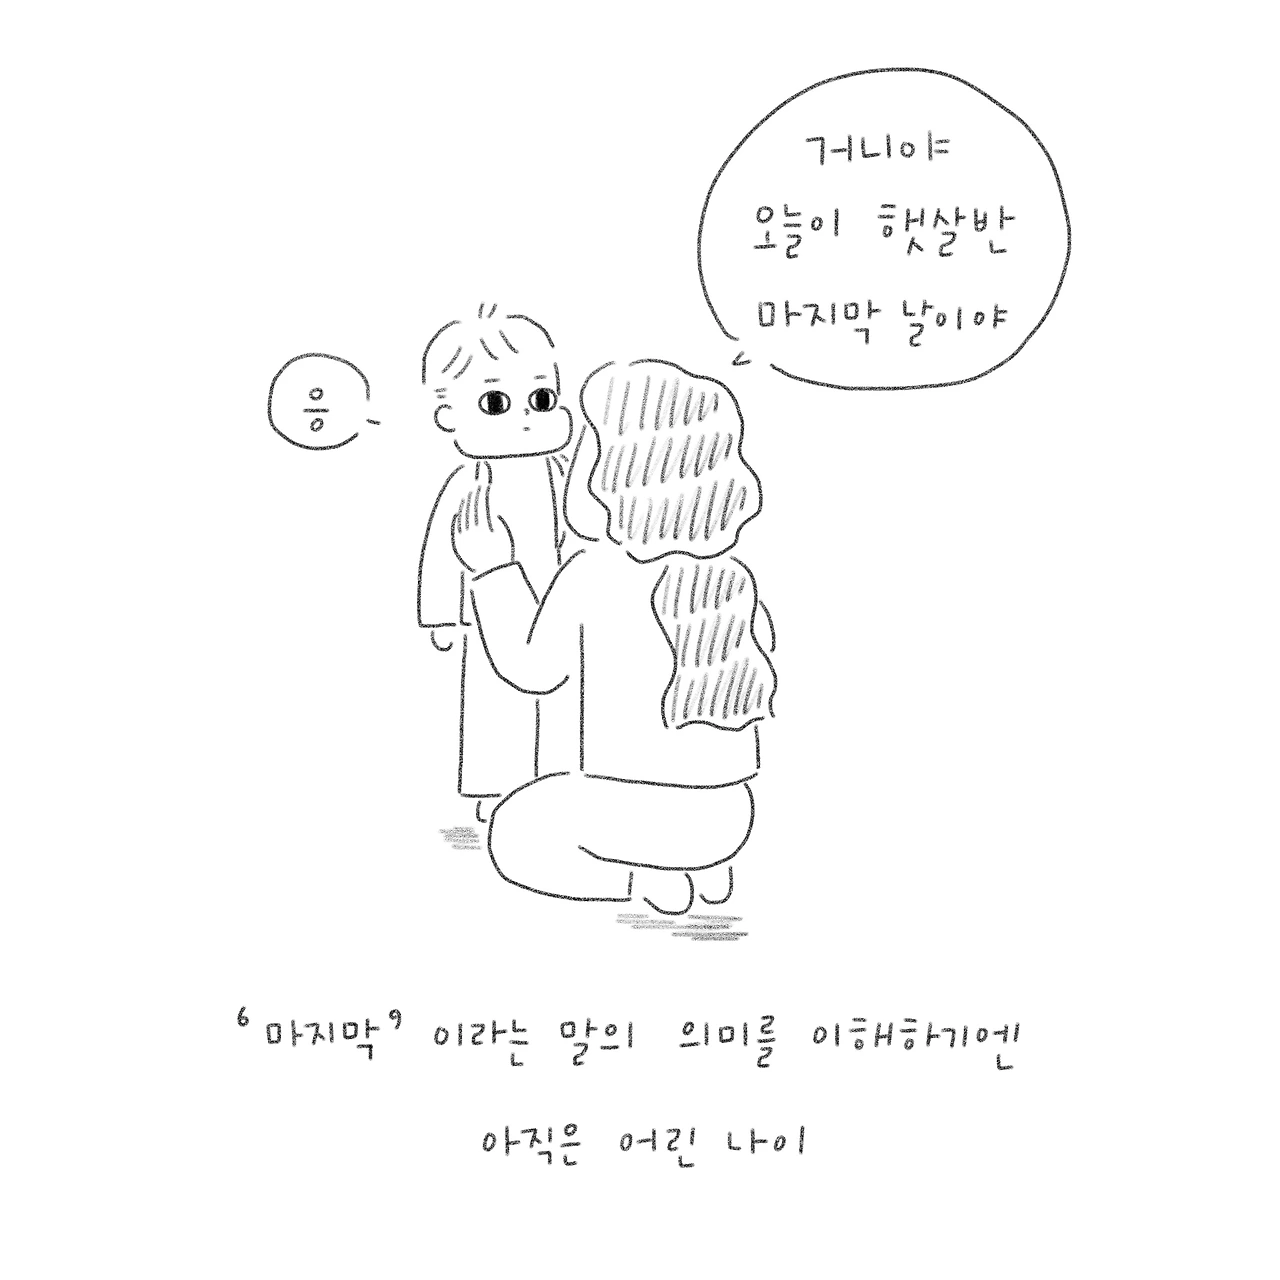 거니야
오늘이 햇살반
마지막 날이야
응
‘마지막’ 이라는 말의 의미를 이해하기엔
아직은 어린 나이